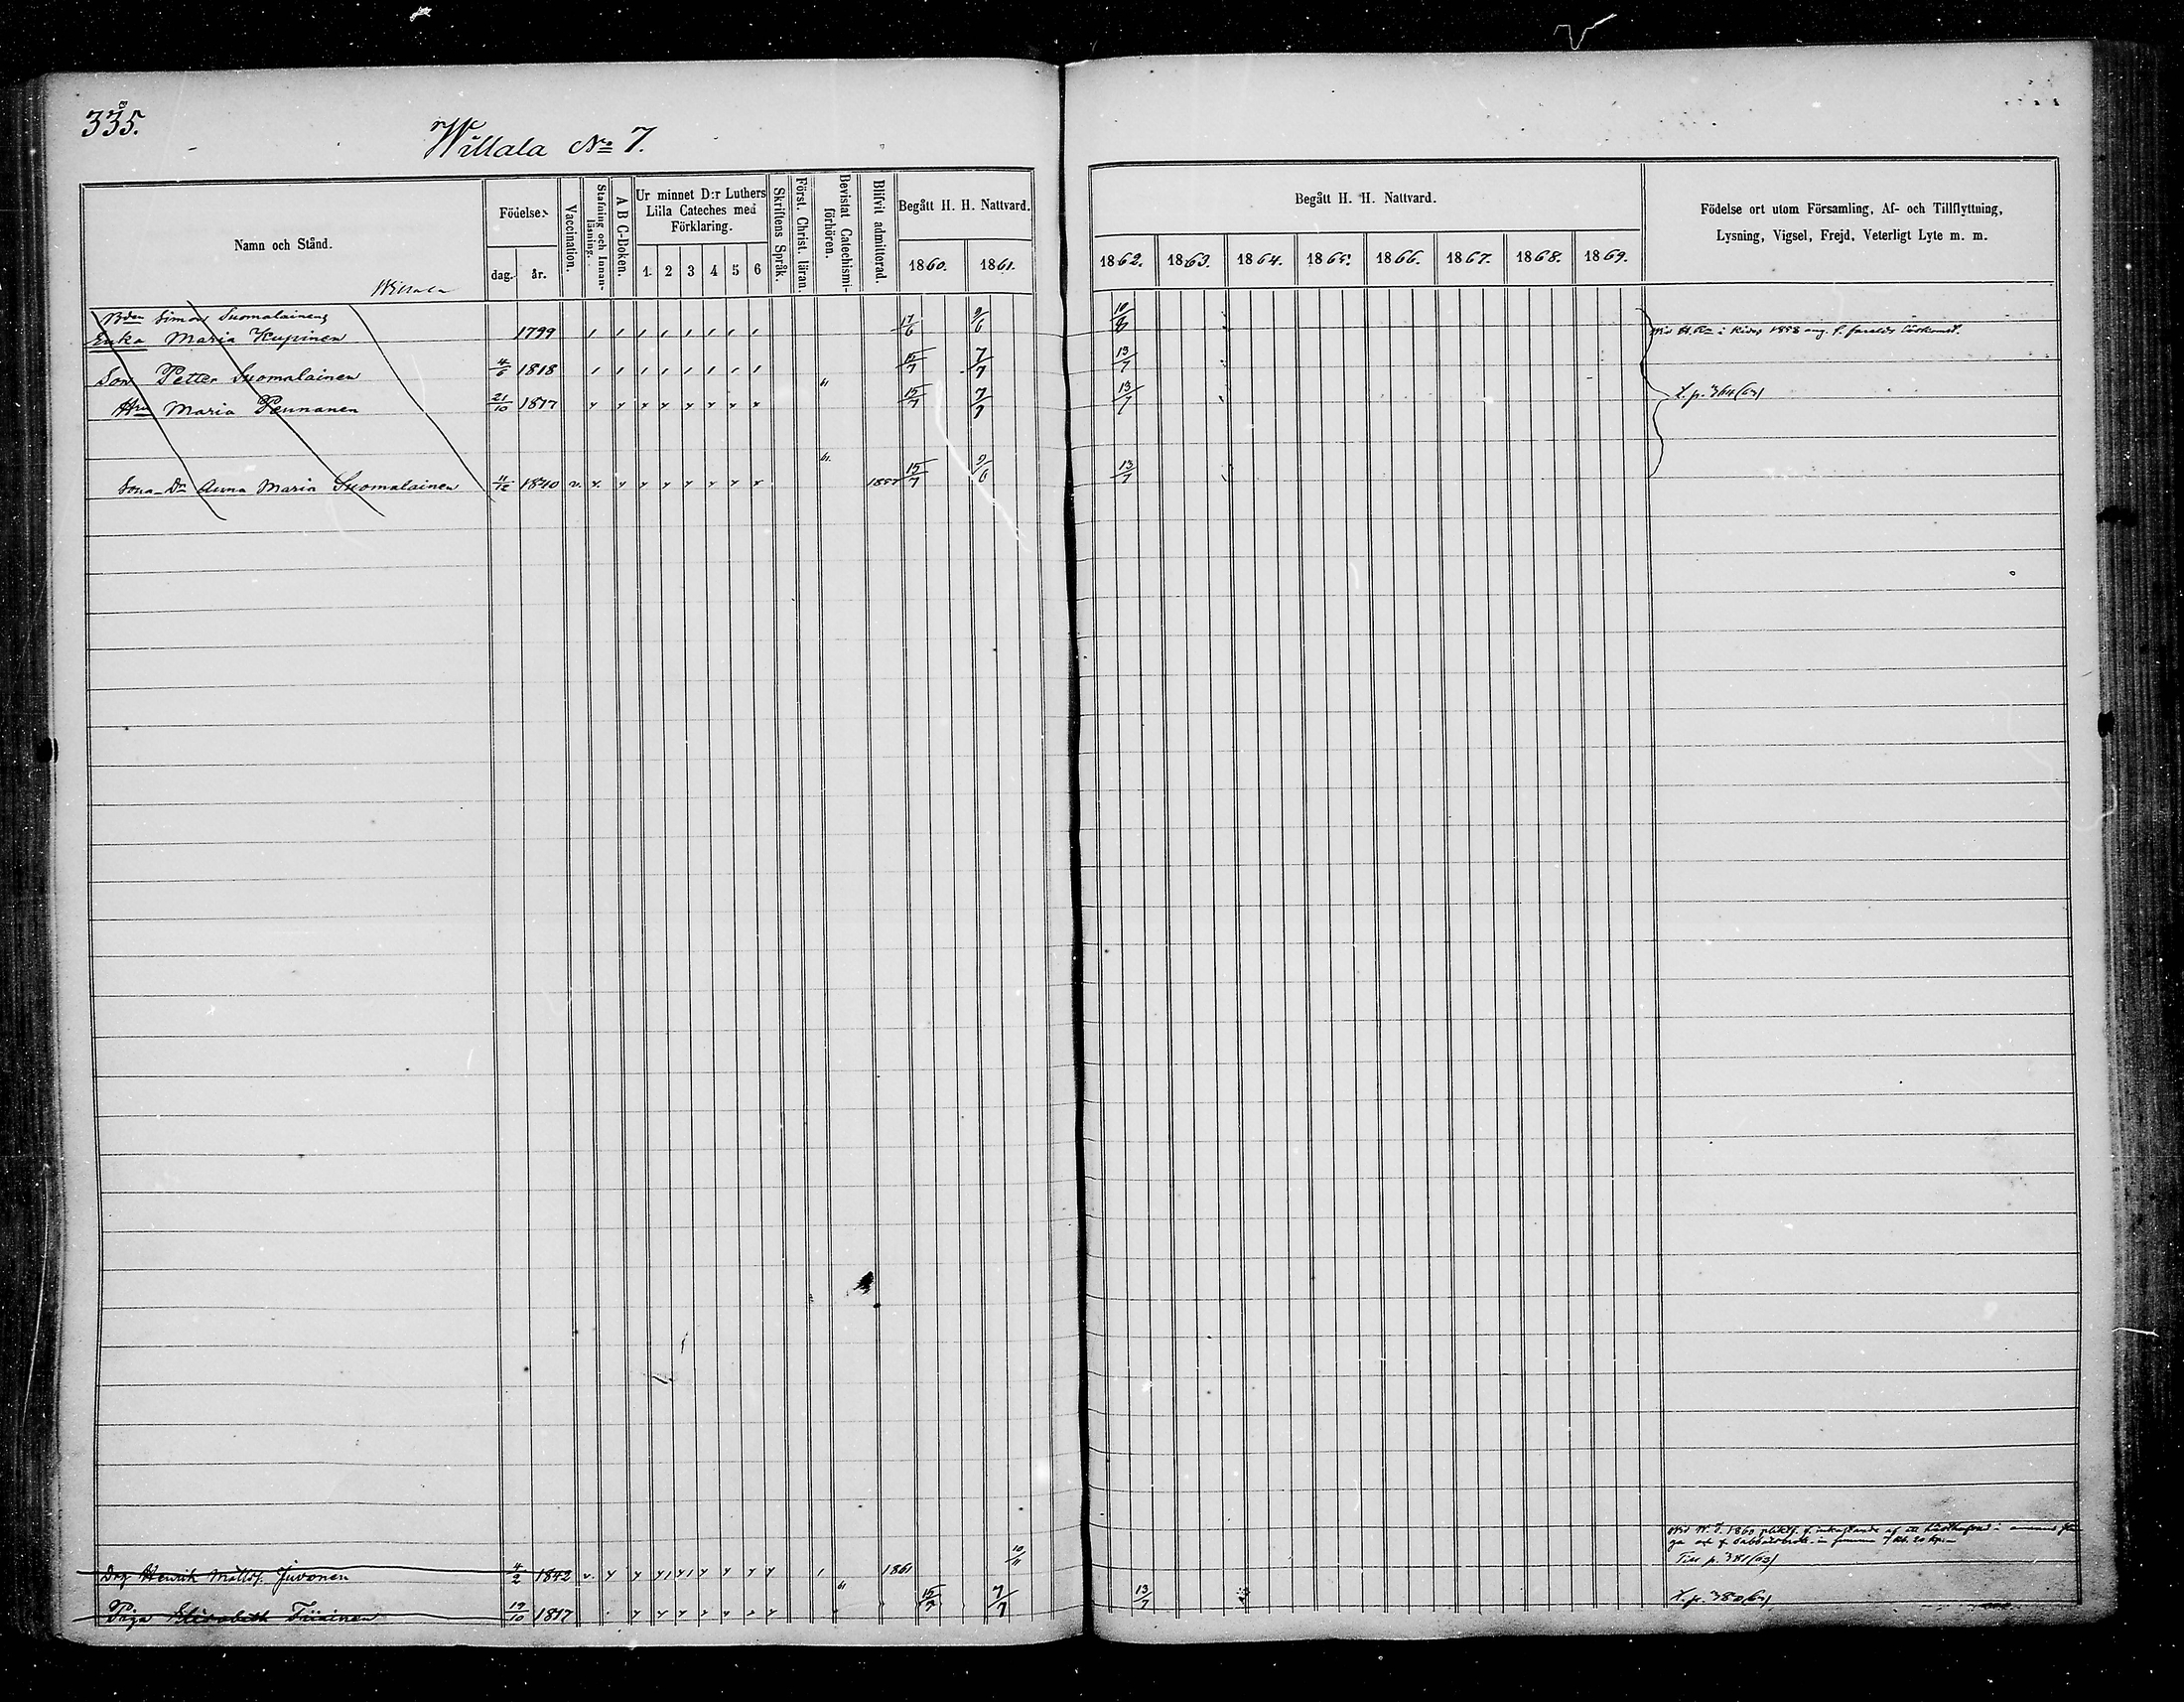 335.
Willala No 7.
Namn och Stånd.
Födelse
dag. år.
Vaccination.
Stafning och Innan-
läsning.
A B C-Boken.
Ur minnet D:r Luthers
Lilla Cateches med
Förklaring.
1. 2 3 4 5 6
Skriftens Språk.
Först. Christ. läran.
Bevistat Catechismi-
förhören.
Blifvit admitterad.
Begått H. H. Nattvard.
1860. 1861.
Begått H. H. Nattvard.
1862. 1863. 1864. 1865. 1866. 1867. 1868. 1869.
Födelse ort utom Församling, Af- och Tillflyttning,
Lysning, Vigsel, Frejd, Veterligt Lyte m. m.
Willala
Bden Simon Suomalainens
Enka Maria Kupinen 1799 17/6 9/6
Son Petter Suomalainen 4/6 1818 15/7 7/7 13/7
Hru Maria Pennanen 21/10 1817 61 15/7 7/7 13/7 t. p. 364 (63)
Sona-Dr Anna Maria Suomalainen 11/12 1840 v. 61. 15/7 9/6 13/7
Drg Henrik Mattss. Juvonen 4/2 1842 v. 1861 10/11 Till p. 381 (62)
Piga Elisabeth Tiiainen 19/10 1817 61 15/7 7/7 13/7 t. p. 380 (64)